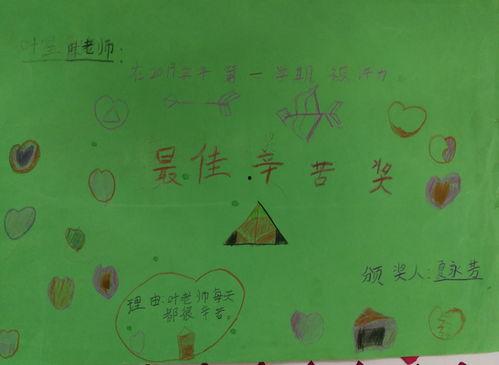 叶老师:
在2017学年第一学期被评为
最佳辛苦奖
颁奖人:夏永芳
理由:叶老师每天
都很辛苦。